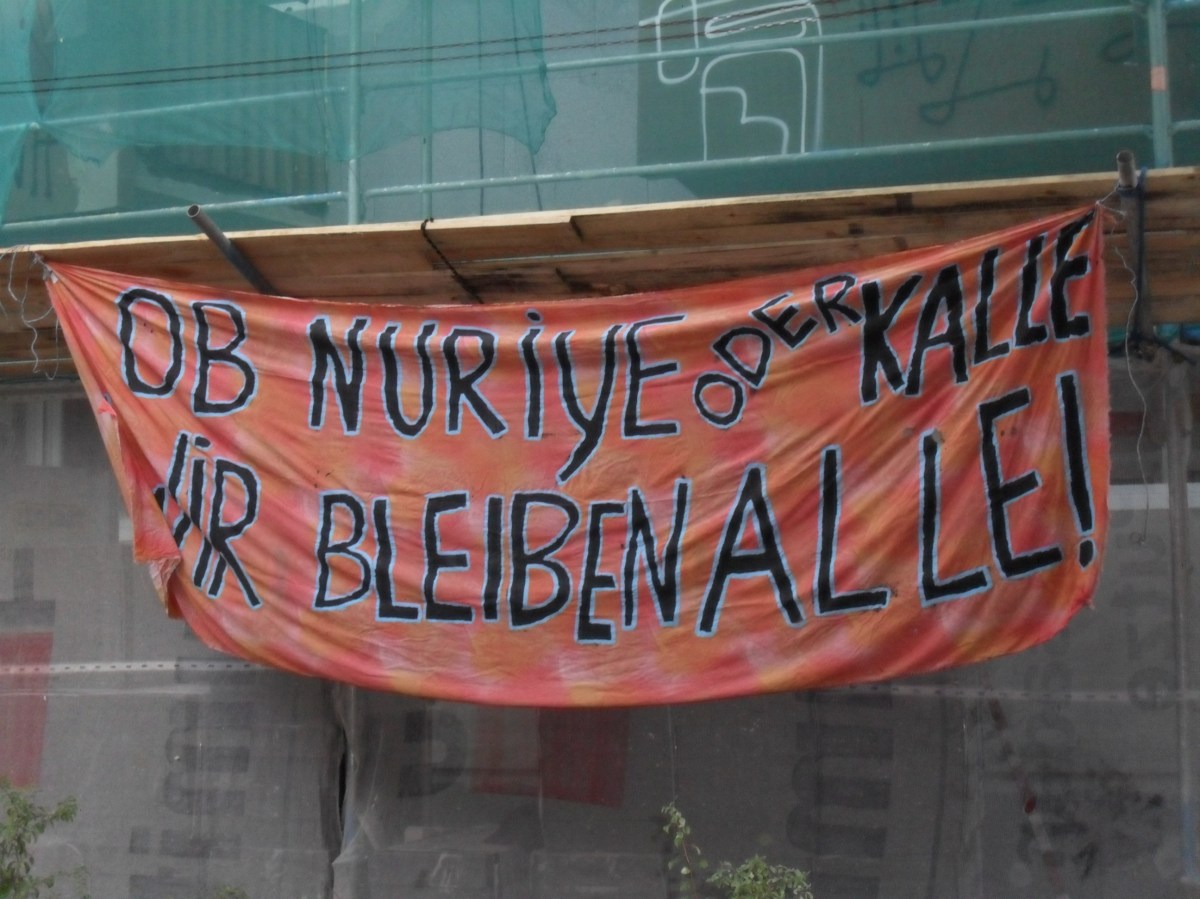 OB NURIYE ODER KALLE
WIR BLEIBEN ALLE!